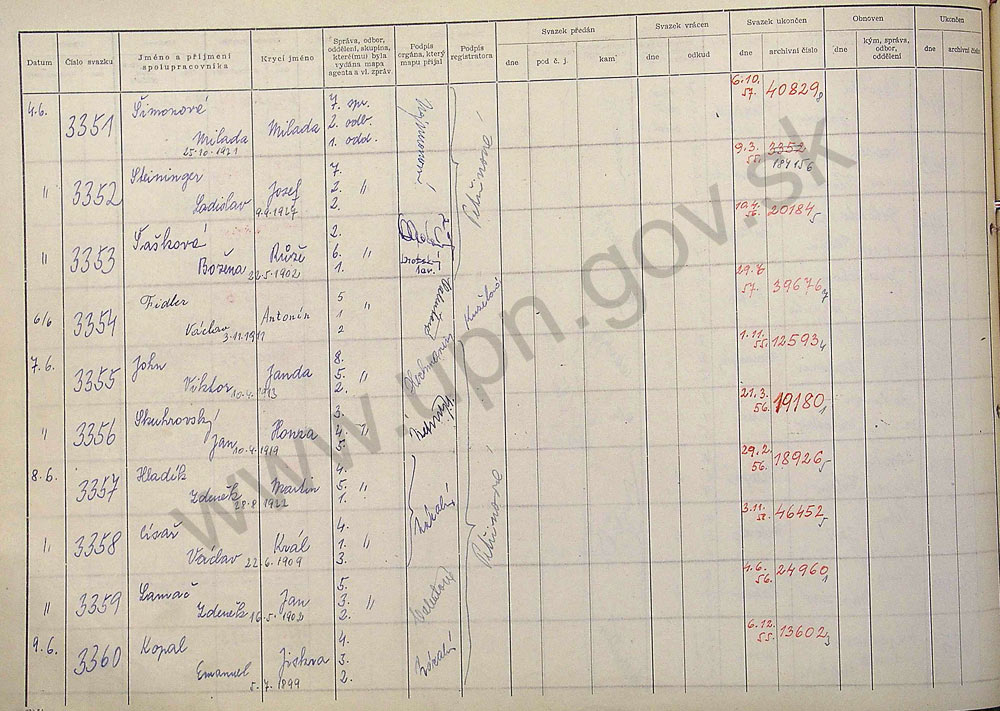 Datum
Číslo svazku
Jméno a příjmení
spolupracovníka
Krycí jméno
Správa, odbor,
oddělení, skupina,
kteréj(mu) byla
vydána mapa
agenta a vl. zpráv
Podpis
orgána, který
mapu přijal
Podpis
registratora
Svazek předán
dne
pod č. j.
kam
Svazek vrácen
dne
odkud
Svazek ukončen
dne
archivní číslo
Obnoven
dne
kým, správa,
odbor,
oddělení
Ukončen
dne
archivní číslo
4.6. 3351 Šimonové Milada 25.10.1921 Milada 7. spr. 2. odb. 1. odd. 6.10. 57. 40829 8
" 3352 Steininger Ladislav 9.9.1927 Josef 7. 2. " 2. 9.3. 55. 3352 184156
" 3353 Tašková Božena 22.5.1902 Růže 2. 6. " 1. 10.4. 56. 20184 5
6/6 3354 Fidler Václav 3.11.1911 Antonín 5 1 " 2 29.8 57. 39676
7.6. 3355 John Viktor 10.4.1913 Janda 8. 5. " 2. 1.11. 55. 12593 4
" 3356 Skuhrovský Jan 10.4.1919 Honza 3. 4. " 5. 21.3. 56. 19180 1
8.6. 3357 Hladík Zdeněk 28.8.1922 Martin 4. 5. " 1. 29.2. 56. 18926 5
" 3358 Císař Václav 22.6.1909 Král 4. 1. " 3. 3.11. 58. 46452 5
" 3359 Lamač Zdeněk 16.5.1903 Jan 5. 3. " 2. 4.6. 56. 24960 1
9.6. 3360 Kopal Emanuel 5.7.1899 Jiskra 4. 3. 2. 6.12. 55. 13602 3
www.upn.gov.sk